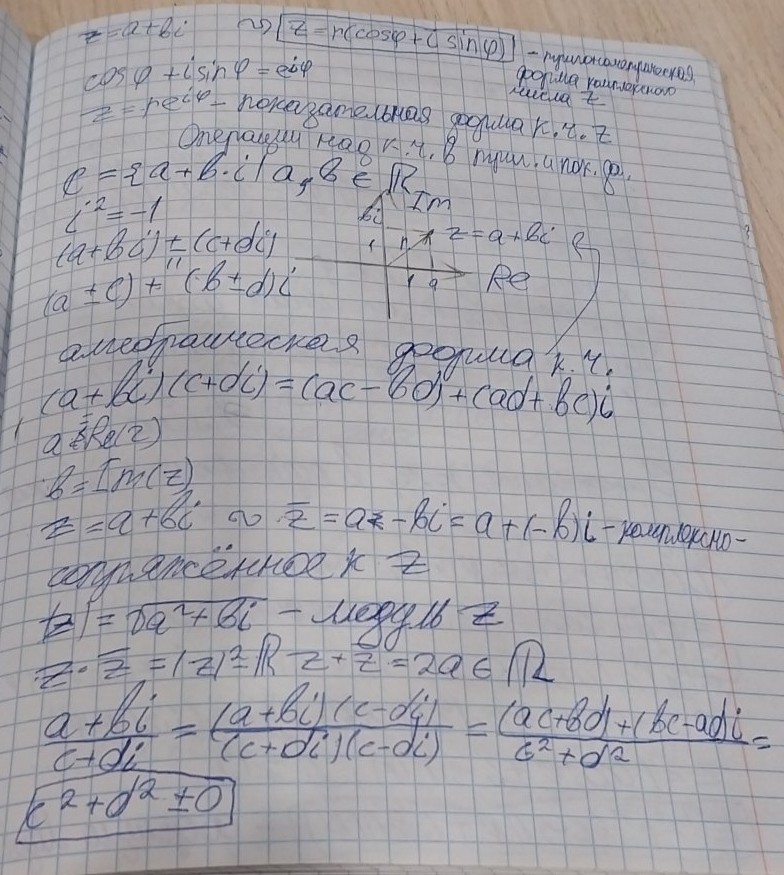 z=a+bi ~> z=r(cosφ+i sinφ) - тригонометрическая
форма комплексного
числа z
cosφ+isinφ=e^iφ
z=re^iφ - показательная форма к.ч. z
Операции над к.ч. в триг. и пок. ф.
C={a+b·i | a,b∈ℝ
i²=-1
Im
bi
z=a+bi
(a+bi)±(c+di)
Re
"
(a±c)+(b±d)i
алгебраическая форма к.ч.
(a+bi)(c+di)=(ac-bd)+(ad+bc)i
a=Re(z)
b=Im(z)
z=a+bi ~ z̅=a-bi=a+(-b)i - комплексно-
сопряжённое к z
|z|=√a²+bi - модуль z
z·z̅=|z|²=ℝ z+z̅=2a∈ℝ
(a+bi)/(c+di) = (a+bi)(c-di)/(c+di)(c-di) = (ac+bd)+(bc-ad)i/c²+d² =
c²+d²≠0